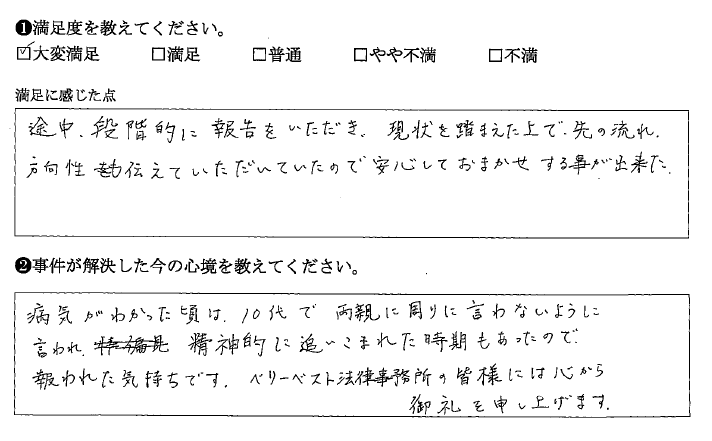 ❶満足度を教えてください。
☑大変満足 □満足 □普通 □やや不満 □不満
満足に感じた点
途中、段階的に報告をいただき、現状を踏まえた上で、先の流れ、
方向性も伝えていただいていたので安心しておまかせする事が出来た。
❷事件が解決した今の心境を教えてください。
病気がわかった頃は、10代で両親に周りに言わないように
言われ、精神的に追いこまれた時期もあったので、
報われた気持ちです。ベリーベスト法律事務所の皆様には心から
御礼を申し上げます。